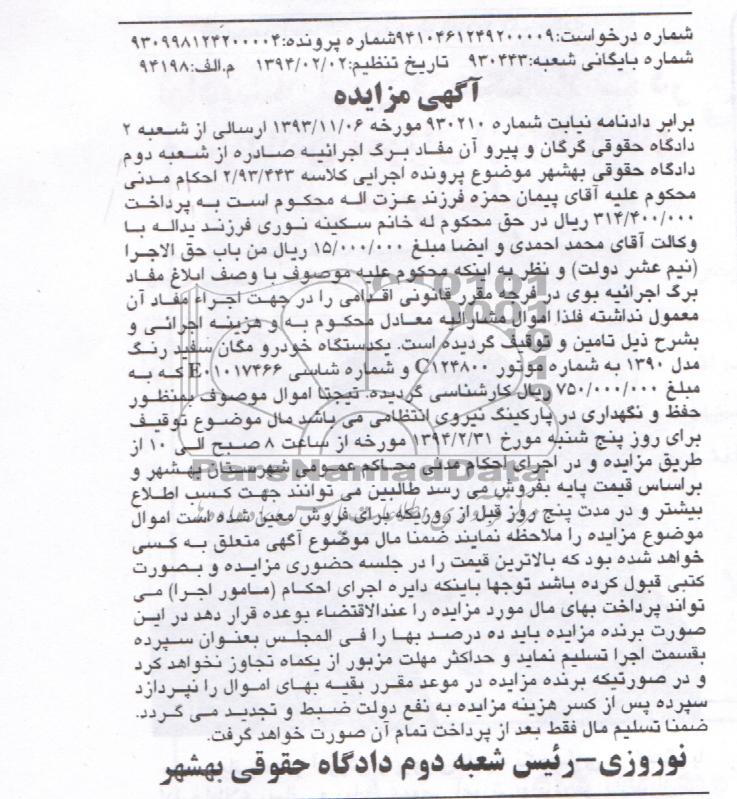 شماره درخواست:۹۴۱۰۴۶۱۲۴۹۲۰۰۰۰۹شماره پرونده:۹۳۰۹۹۸۱۲۴۲۰۰۰۰۴
شماره بایگانی شعبه:۹۳۰۴۴۳ تاریخ تنظیم:۱۳۹۴/۰۲/۰۲ م.الف:۹۴۱۹۸
آگهی مزایده
برابر دادنامه نیابت شماره ۹۳۰۲۱۰ مورخه ۱۳۹۳/۱۱/۰۶ ارسالی از شعبه ۲
دادگاه حقوقی گرگان و پیرو آن مفاد برگ اجرائیه صادره از شعبه دوم
دادگاه حقوقی بهشهر موضوع پرونده اجرایی کلاسه ۲/۹۳/۴۴۳ احکام مدنی
محکوم علیه آقای پیمان حمزه فرزند عزت اله محکوم است به پرداخت
۳۱۴/۴۰۰/۰۰۰ ریال در حق محکوم له خانم سکینه نوری فرزند یداله با
وکالت آقای محمد احمدی و ایضا مبلغ ۱۵/۰۰۰/۰۰۰ ریال من باب حق الاجرا
(نیم عشر دولت) و نظر به اینکه محکوم علیه موصوف با وصف ابلاغ مفاد
برگ اجرائیه بوی در فرجه مقرر قانونی اقدامی را در جهت اجراء مفاد آن
معمول نداشته فلذا اموال مشارالیه معادل محکوم به و هزینه اجرائی و
بشرح ذیل تامین و توقیف گردیده است. یکدستگاه خودرو مگان سفید رنگ
مدل ۱۳۹۰ به شماره موتور C۱۲۴۸۰۰ و شماره شاسی E۰۱۰۱۷۴۶۶ که به
مبلغ ۷۵۰/۰۰۰/۰۰۰ ریال کارشناسی گردیده. نتیجتا اموال موصوف بمنظور
حفظ و نگهداری در پارکینگ نیروی انتظامی می باشد مال موضوع توقیف
برای روز پنج شنبه مورخ ۱۳۹۴/۲/۳۱ مورخه از ساعت ۸ صبح الی ۱۰ از
طریق مزایده و در اجرای احکام مدنی محاکم عمومی شهرستان بهشهر و
براساس قیمت پایه بفروش می رسد طالبین می توانند جهت کسب اطلاع
بیشتر و در مدت پنج روز قبل از روزیکه برای فروش معین شده است اموال
موضوع مزایده را ملاحظه نمایند ضمنا مال موضوع آگهی متعلق به کسی
خواهد شده بود که بالاترین قیمت را در جلسه حضوری مزایده و بصورت
کتبی قبول کرده باشد توجها باینکه دایره اجرای احکام (مامور اجرا) می
تواند پرداخت بهای مال مورد مزایده را عندالاقتضاء بوعده قرار دهد در این
صورت برنده مزایده باید ده درصد بها را فی المجلس بعنوان سپرده
بقسمت اجرا تسلیم نماید و حداکثر مهلت مزبور از یکماه تجاوز نخواهد کرد
و در صورتیکه برنده مزایده در موعد مقرر بقیه بهای اموال را نپردازد
سپرده پس از کسر هزینه مزایده به نفع دولت ضبط و تجدید می گردد.
ضمنا تسلیم مال فقط بعد از پرداخت تمام آن صورت خواهد گرفت.
نوروزی–رئیس شعبه دوم دادگاه حقوقی بهشهر
ParsNamadData